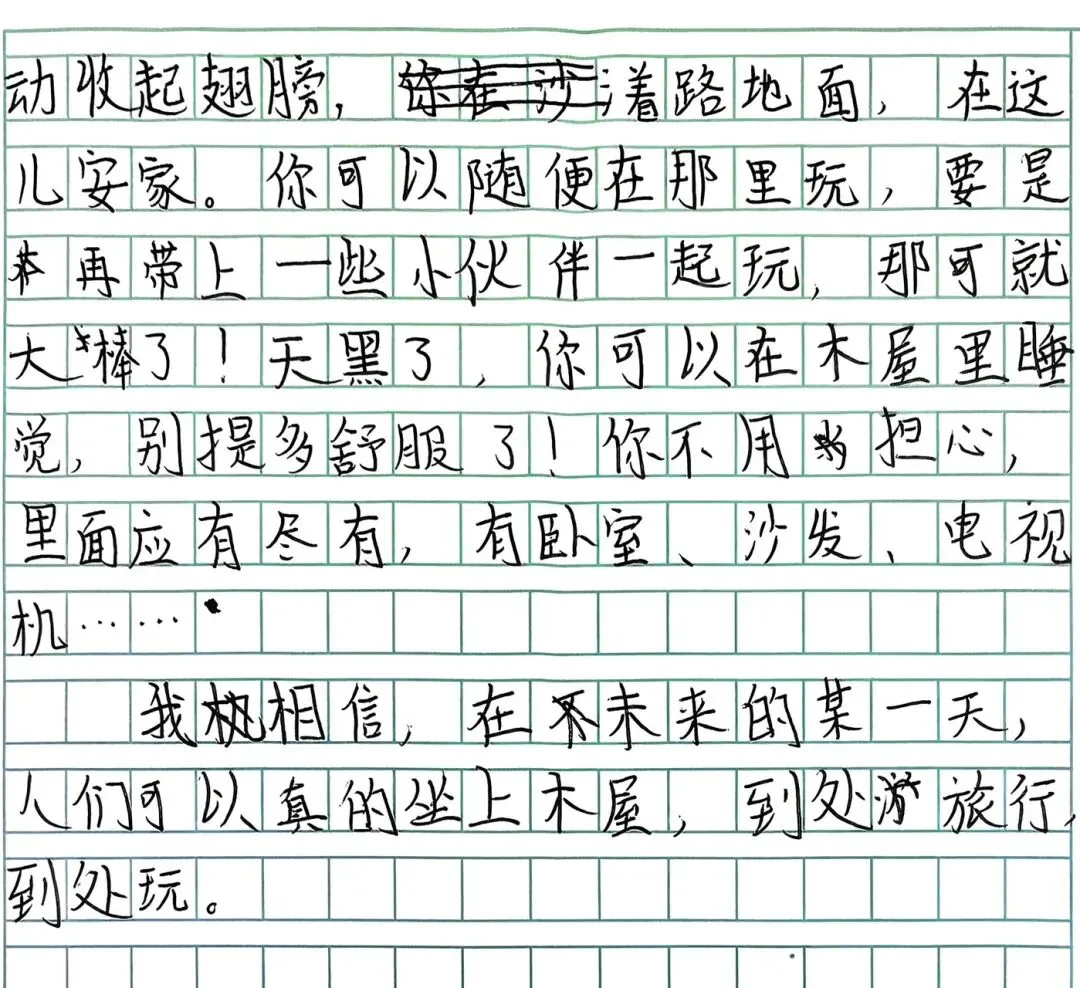 动收起翅膀，着路地面，在这
儿安家。你可以随便在那里玩，要是
再带上一些小伙伴一起玩，那可就
大棒了！天黑了，你可以在木屋里睡
觉，别提多舒服了！你不用担心，
里面应有尽有，有卧室、沙发、电视
机……
我相信，在未来的某一天，
人们可以真的坐上木屋，到处旅行，
到处玩。